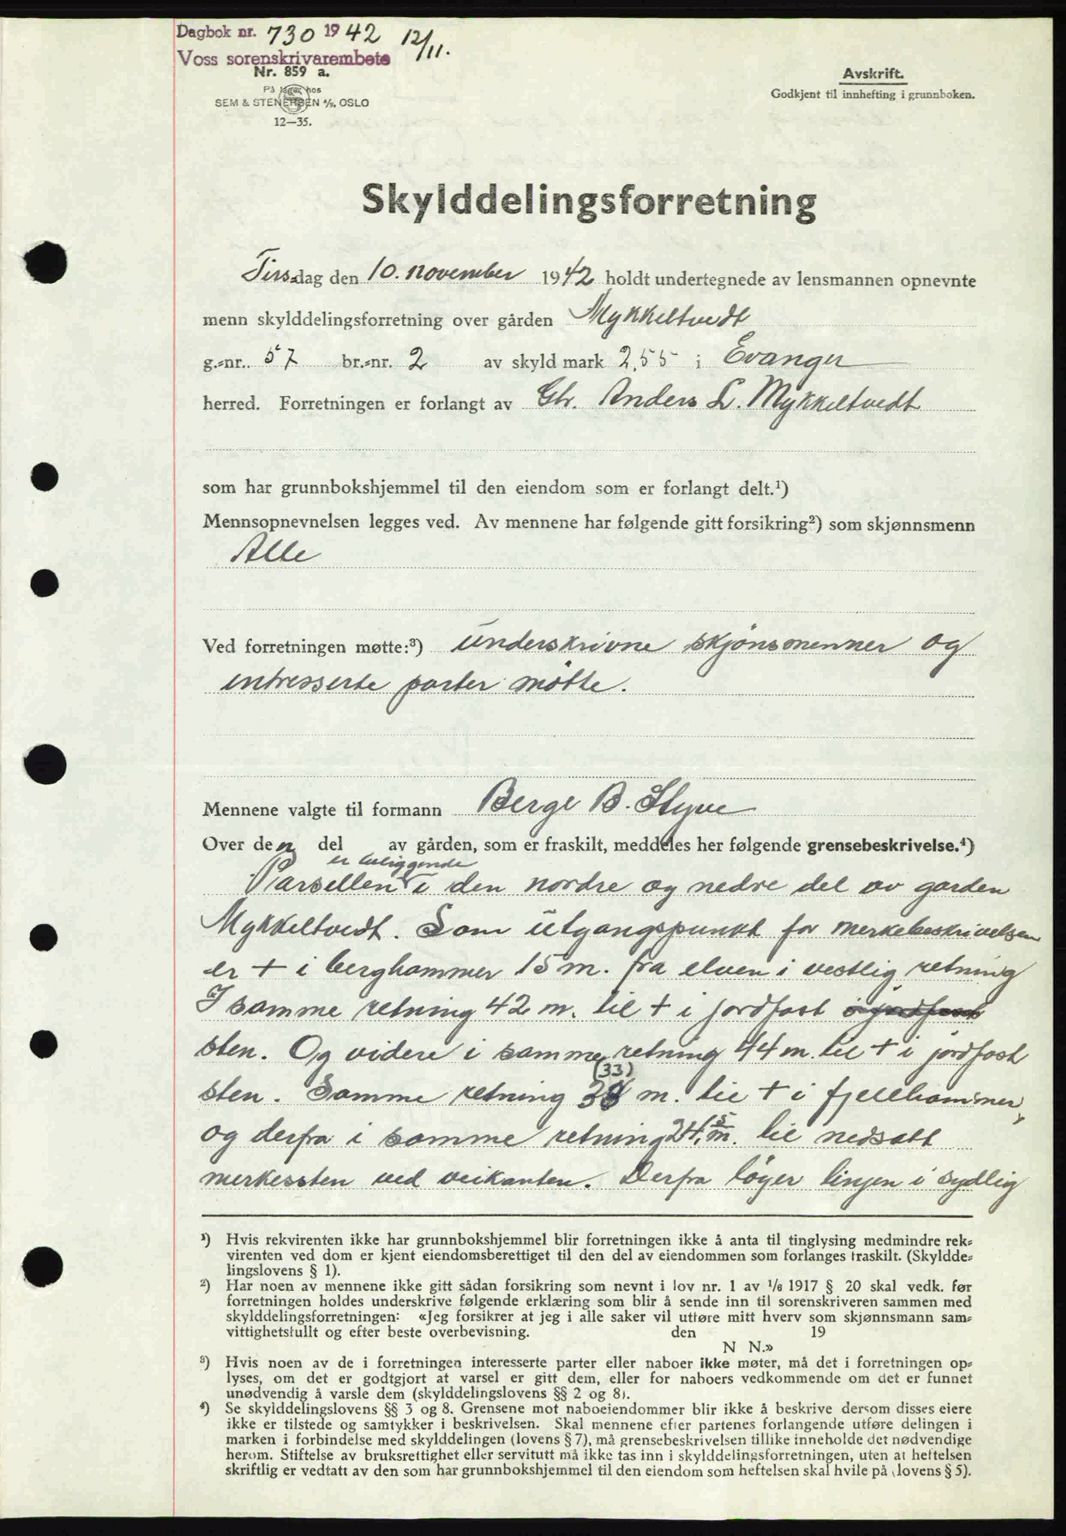 Dagbok nr. 730 1942 12/11.
Voss sorenskrivarembete
Nr. 859 a.
På lager hos
SEM & STENERSEN A/S, OSLO
12—35.
Avskrift.
Godkjent til innhefting i grunnboken.
Skylddelingsforretning
Tirsdag den 10. november 1942 holdt undertegnede av lensmannen opnevnte
menn skylddelingsforretning over gården Mykkeltvedt
g.=nr. 57 br.=nr. 2 av skyld mark 2,55 i Evanger
herred. Forretningen er forlangt av Gbr. Anders L. Mykkeltvedt
som har grunnbokshjemmel til den eiendom som er forlangt delt.¹)
Mennsopnevnelsen legges ved. Av mennene har følgende gitt forsikring²) som skjønnsmenn
Alle
Ved forretningen møtte:³) underskrivne skjønsmenner og
intresserte parter møtte.
Mennene valgte til formann Berge B. Styve
Over den del av gården, som er fraskilt, meddeles her følgende grensebeskrivelse.⁴)
er beliggende
Parsellen i den nordre og nedre del av garden
Mykkeltvedt. Som utgangspunkt for merkebeskrivelsen
er + i berghammer 15 m. fra elven i vestlig retning
I samme retning 42 m. til + i jordfast i jordfast
sten. Og videre i samme retning 44 m. til + i jordfast
(33)
sten. Samme retning 38 m. til + i fjellhammer,
og derfra i samme retning 24,5 m. til nedsatt
merkessten ved veikanten. Derfra løyer linjen i sydlig
¹) Hvis rekvirenten ikke har grunnbokshjemmel blir forretningen ikke å anta til tinglysing medmindre rek=
virenten ved dom er kjent eiendomsberettiget til den del av eiendommen som forlanges fraskilt. (Skyldde=
lingslovens § 1).
²) Har noen av mennene ikke gitt sådan forsikring som nevnt i lov nr. 1 av 1/6 1917 § 20 skal vedk. før
forretningen holdes underskrive følgende erklæring som blir å sende inn til sorenskriveren sammen med
skylddelingsforretningen: «Jeg forsikrer at jeg i alle saker vil utføre mitt hverv som skjønnsmann sam=
vittighetsfullt og efter beste overbevisning. den 19
N N.»
³) Hvis noen av de i forretningen interesserte parter eller naboer ikke møter, må det i forretningen op=
lyses, om det er godtgjort at varsel er gitt dem, eller for naboers vedkommende om det er funnet
unødvendig å varsle dem (skylddelingslovens §§ 2 og 8).
⁴) Se skylddelingslovens §§ 3 og 8. Grensene mot naboeiendommer blir ikke å beskrive dersom disses eiere
ikke er tilstede og samtykker i beskrivelsen. Skal mennene efter partenes forlangende utføre delingen i
marken i forbindelse med skylddelingen (lovens § 7), må grensebeskrivelsen tillike inneholde det nødvendige
herom. Stiftelse av bruksrettighet eller servitutt må ikke tas inn i skylddelingsforretningen, uten at heftelsen
skriftlig er vedtatt av den som har grunnbokshjemmel til den eiendom som heftelsen skal hvile på (lovens § 5).